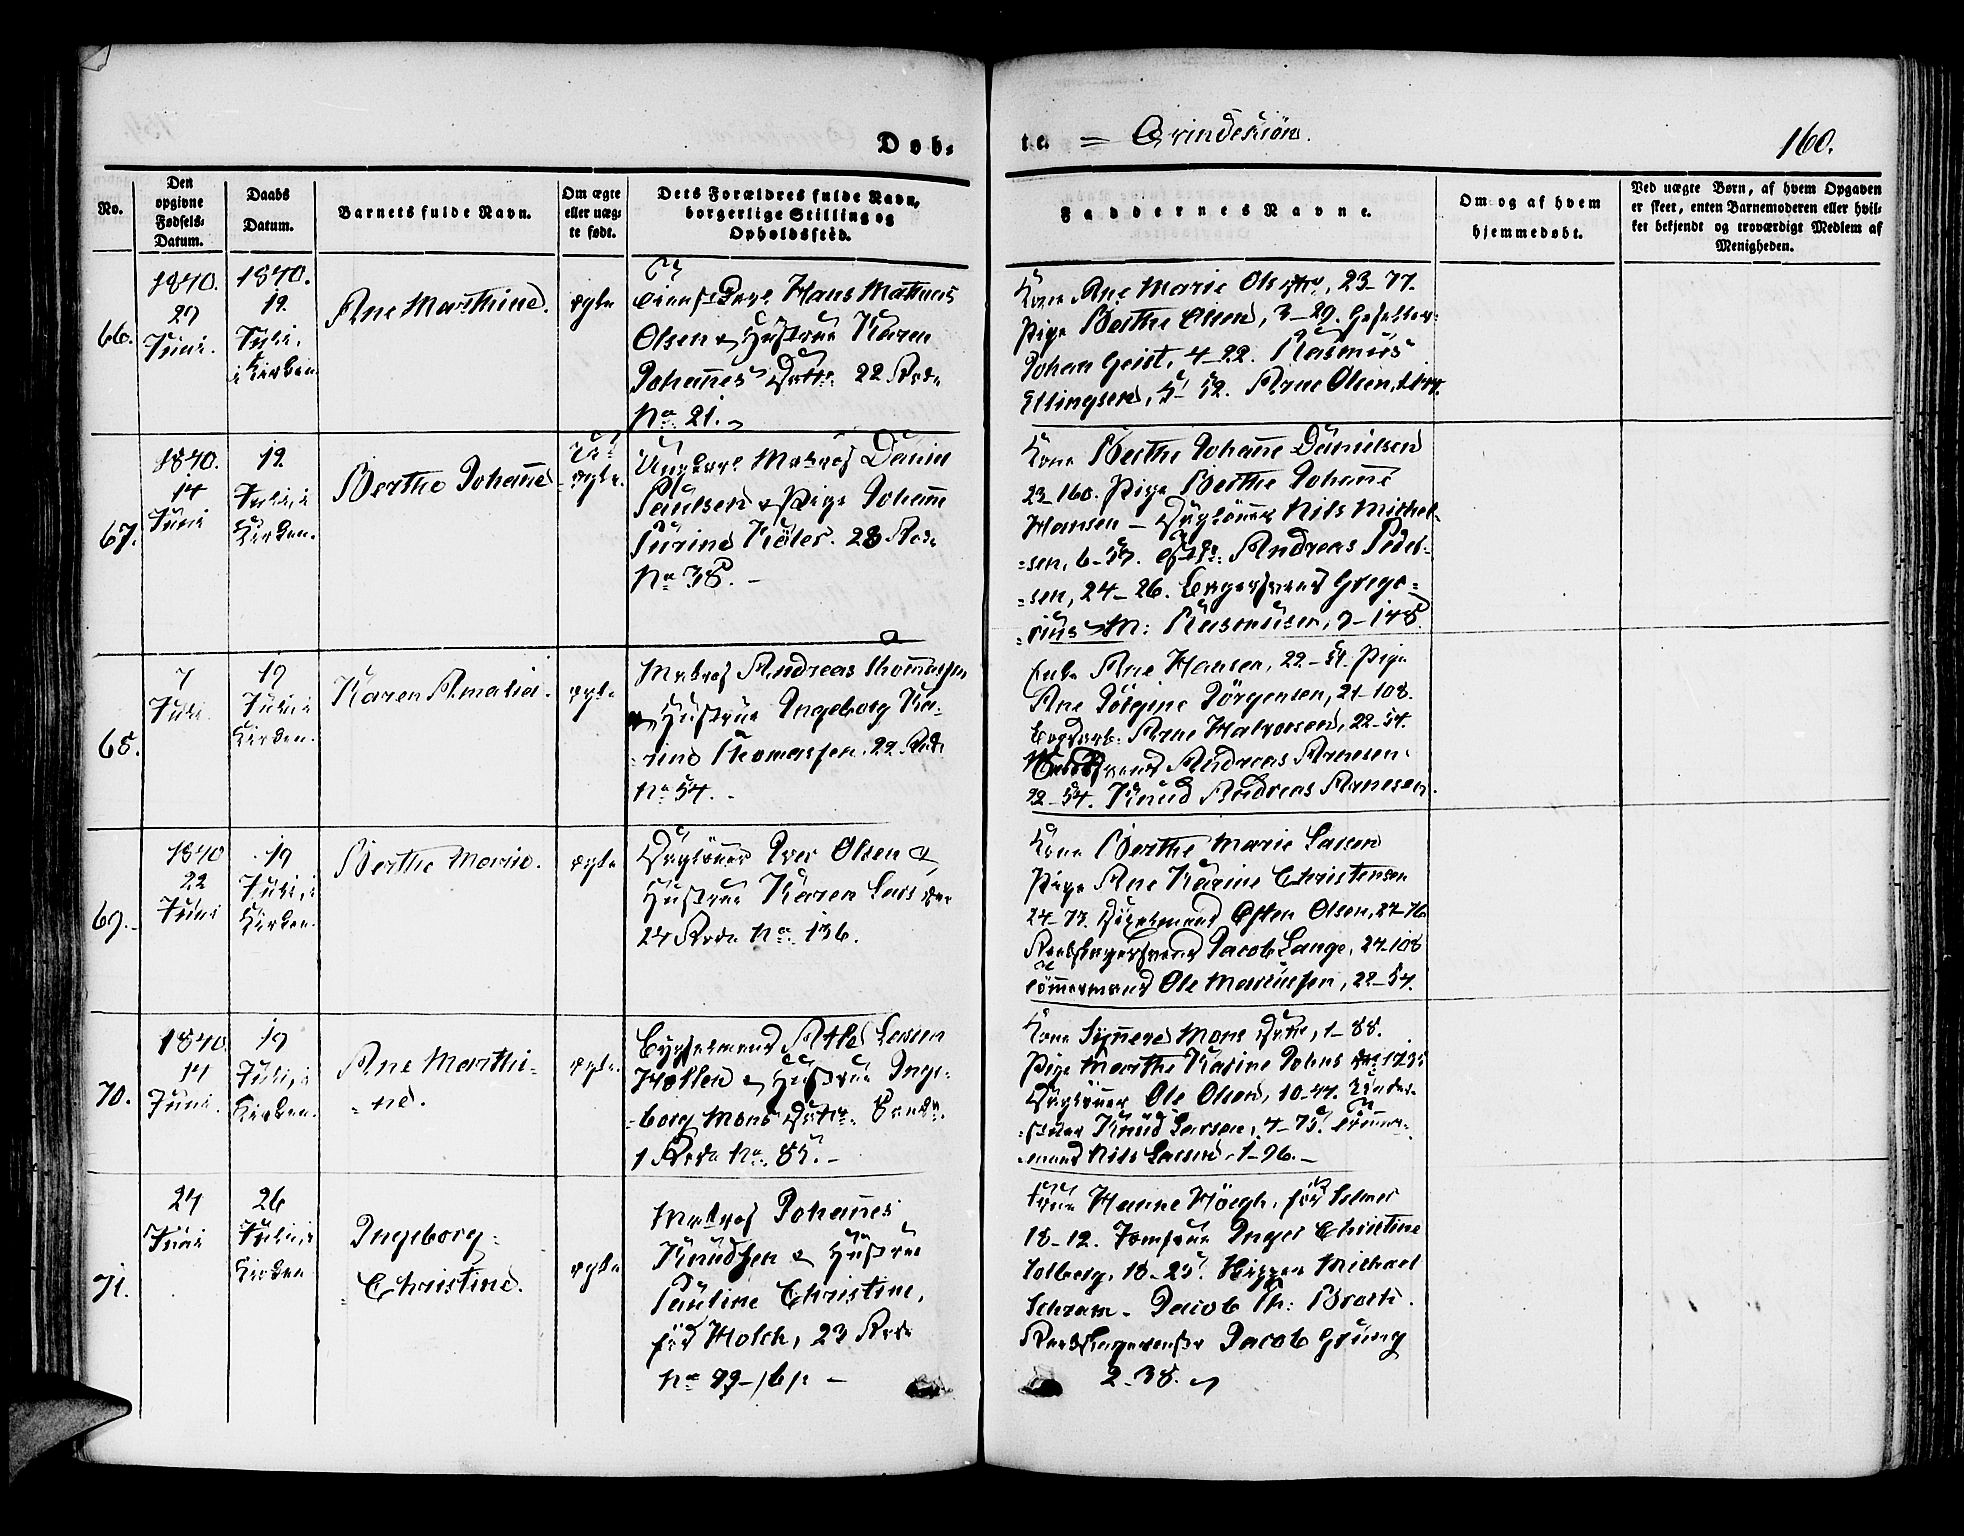 Døb-
te. = Qvindekiøn.
160.
No.
Den opgivne Fødsels-Datum.
Daabs Datum.
Barnets fulde Navn.
Om ægte eller uæg-te født.
Dets Forældres fulde Navn, borgerlige Stilling og Opholdssted.
Faddernes Navne.
Om og af hvem hjemmedøbt.
Ved uægte Børn, af hvem Opgaven
er skeet, enten Barnemoderen eller hvil-
ket bekjendt og troværdigt Medlem af
Menigheden.
66.
1840.
27
Juni.
1840.
19.
Juli,
i Kirken.
Ane Marthine.
ægte
Hans Mathias
Olsen & Hustrue Karen
Johannes Dotter. 22 Rode
No 21.
Kone Ane Marie Ols Dtr, 23-77.
Pige Berthe Olsen, 3-29.
Johan Geist, 4-22. Rasmus
Ellingsen, 5-52. Arne Olsen,
67.
1840.
14
Juni
19.
Juli, i
Kirken.
Berthe Johanne
U-
ægte.
Ungkarl Matros Daniel
Paulsen & Pige Johanne
Köler. 23 Rode
No 38. -
Kone Berthe Johanne Danielsen
23-160. Pige Berthe Johanne
Hansen - Dagløner Nils Michel-
=sen, 6-57. Andreas Peder-
=sen, 24-26. Grego-
=rius M: Rasmusen, 9-148
68.
7
Juli.
19
Juli i
Kirken.
Karen Amalia.
ægte
Matros Andreas Thomassen
& Hustrue Ingeborg Ka-
=rine Thomassen. 22 Rode
No 54. -
Enke Ane Hansen, 22-51. Pige
Ane Jörgine Jörgensen, 21-108.
Arne Halvorsen, 22-54.
Andreas Arnesen.
22-54. Knud Andreas Arnesen.
69.
1840
22
Juni
19
Juli, i
Kirken.
Berthe Marie.
ægte
Dagløner Iver Olsen &
Hustrue Karen Lars Dtr
24 Rode No 136.
Kone Berthe Marie Larsen
Pige Ane Karine Christensen
24-73. Esten Olsen, 24-76
Jacob Lange, 24-108
Tømmermand Ole Martinsen, 22-54.
70.
1840.
14
Juni.
19
Juli, i
Kirken.
Ane Marthi-
=ne.
ægte.
Bygselmand Atle Larsen
Hollen & Hustrue Inge-
=borg Mons Dotter.
1 Rode No 85. -
Kone Synneve Mons Dotter, 1-88.
Pige Marthe Karine Johns
Dagløner Ole Olsen, 10-47.
Knud Larsen, 4-75. Tømmer-
mand Nils Larsen, 1-96. -
71.
24
Juni
26
Juli, i
Kirken
Ingeborg
=Christine.
ægte
Matros Johannes
Knudsen & Hustrue
Pauline Christine,
föd Holck, 23 Rode
No 99-/61. -
Frue Hanne Höegh, föd Selmer
18-12. Jomfrue Inger Christine
Solberg, 18-25. Skipper Michael
Schram - Jacob Th: Broch.
Jacob Grung
2-38.